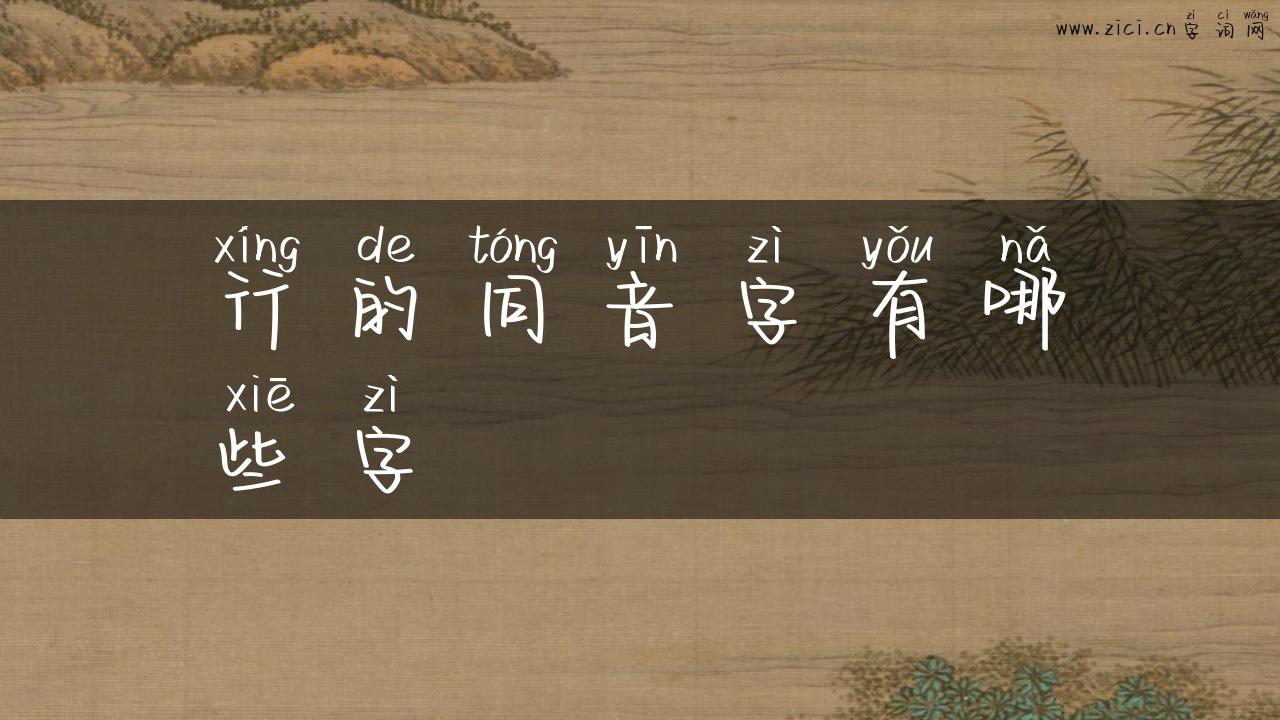 zì cí wǎng
www.zici.cn 字词网
xíng de tóng yīn zì yǒu nǎ
行的同音字有哪
xiē zì
些字